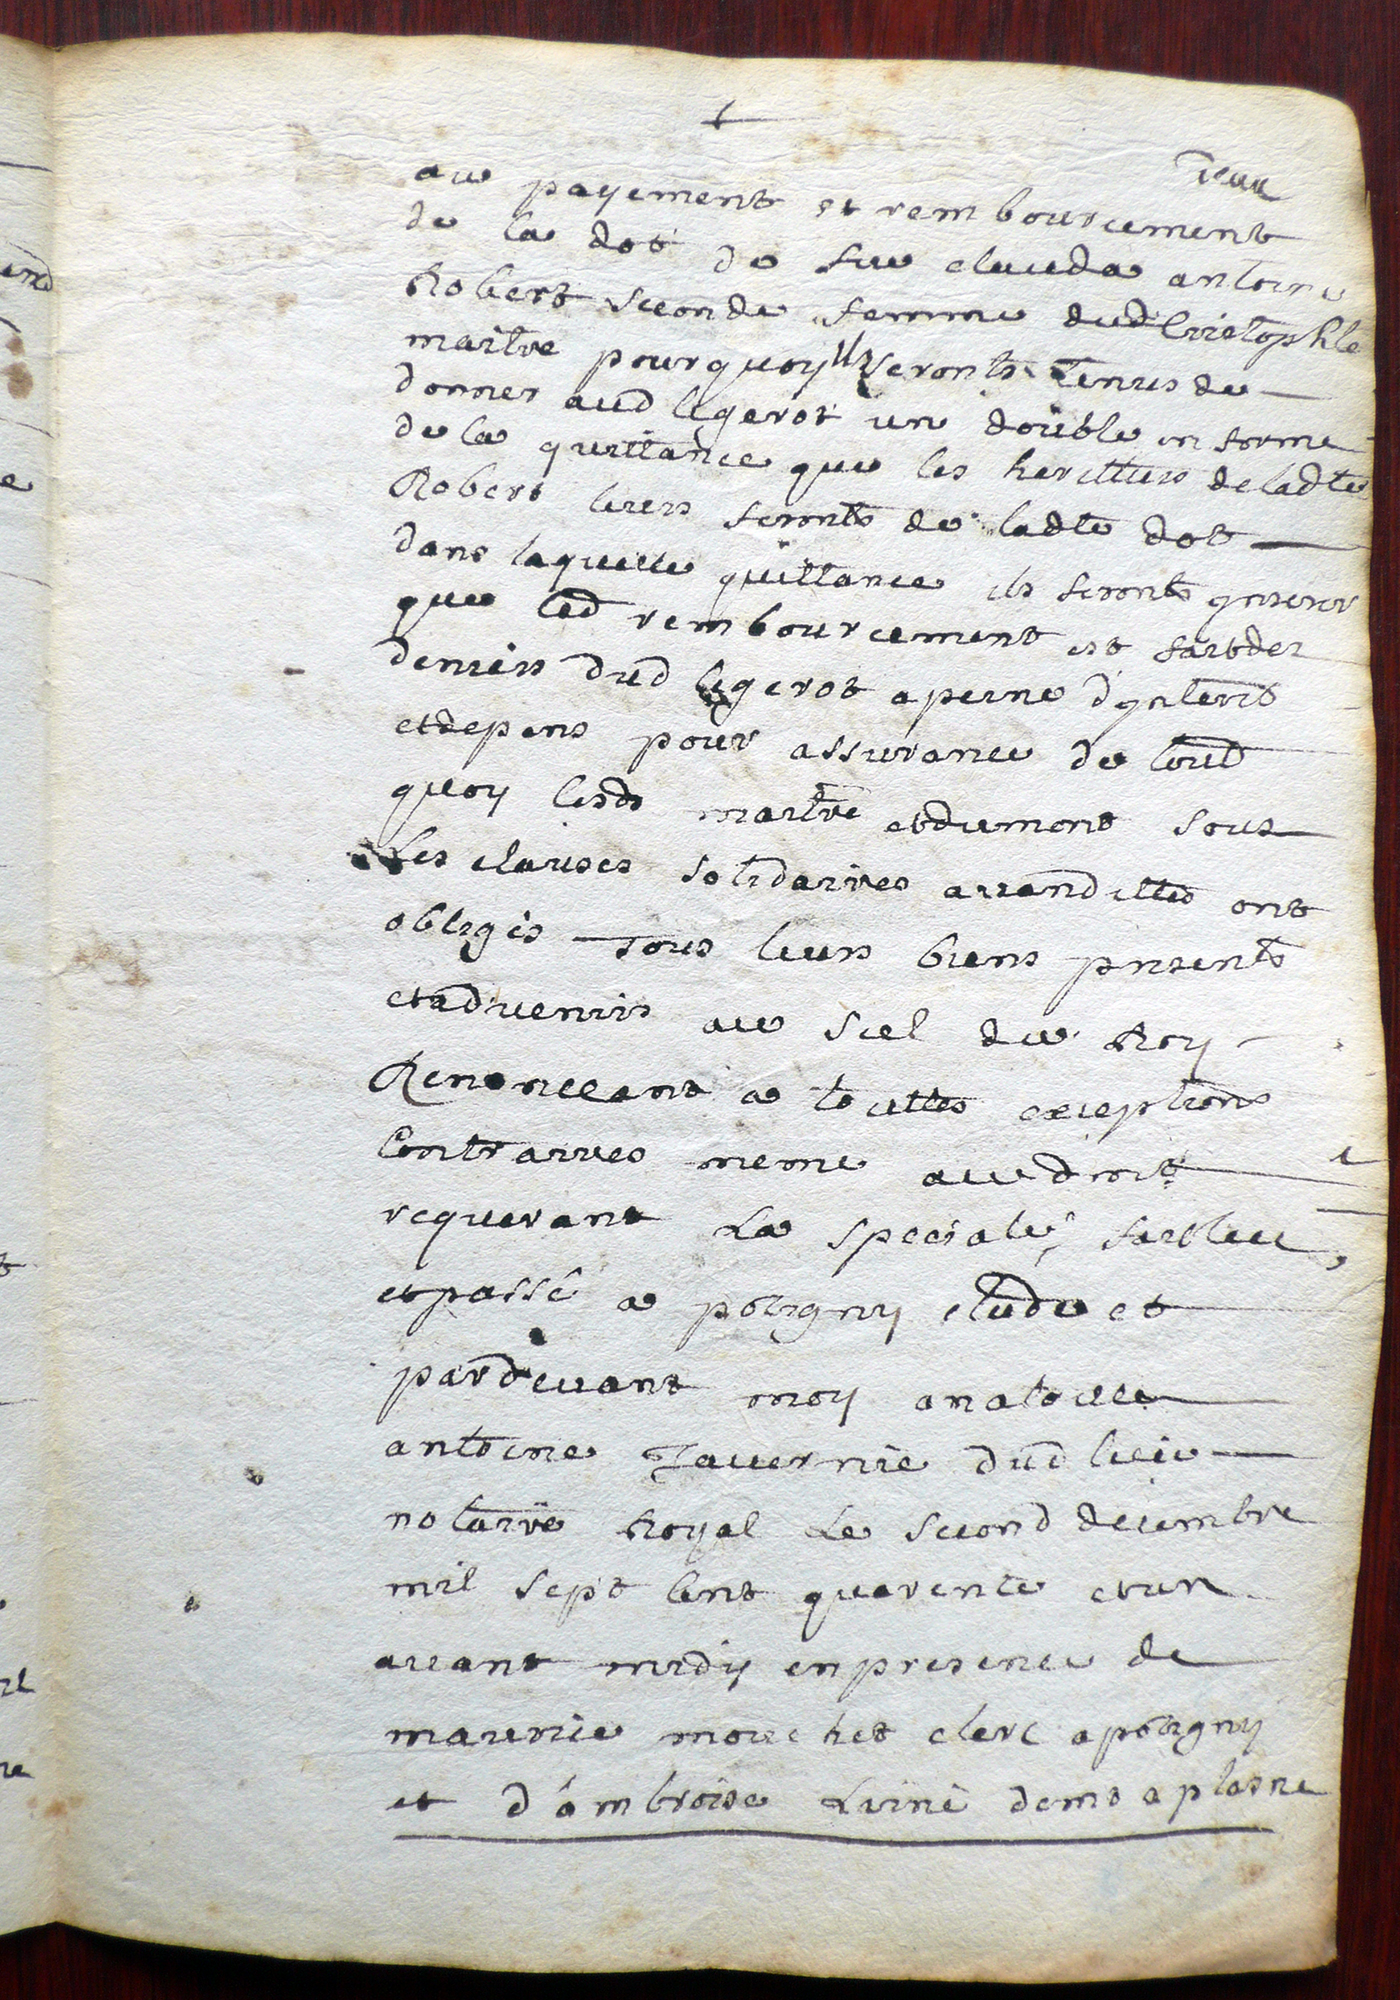 au payement et rembourcement
de la dot de fue clauda antoine
Robert seconde femme dud Cristophle
maitre pourquoy ils seronts tenus de
donner aud ligerot un double en forme
de la quittance que les heritters de ladte
Robert leurs feronts de ladte dot
dans laquelle quittance ils feronts ynserer
que led rembourcement est fait des
deniers dud ligerot a peine d'ynterets
et depens pour assurance de tout
quoy lesds maitre et dumont sous
Les clauses solidaires avandittes ont
obligés tous leurs biens pnsents
et advenirs au scel du Roy
Renonceant a touttes exceptions
Contraires meme au droit
requerant La speciale, fait leu
et passé a poligny etude et
pardevant moy anatoille
antoine Javernie dud lieu
notaire Royal Le second decembre
mil sept Cent quarente et un
avant midy en presence de
maurice mouchet clerc a poligny
et d'ambroise demt a plasne